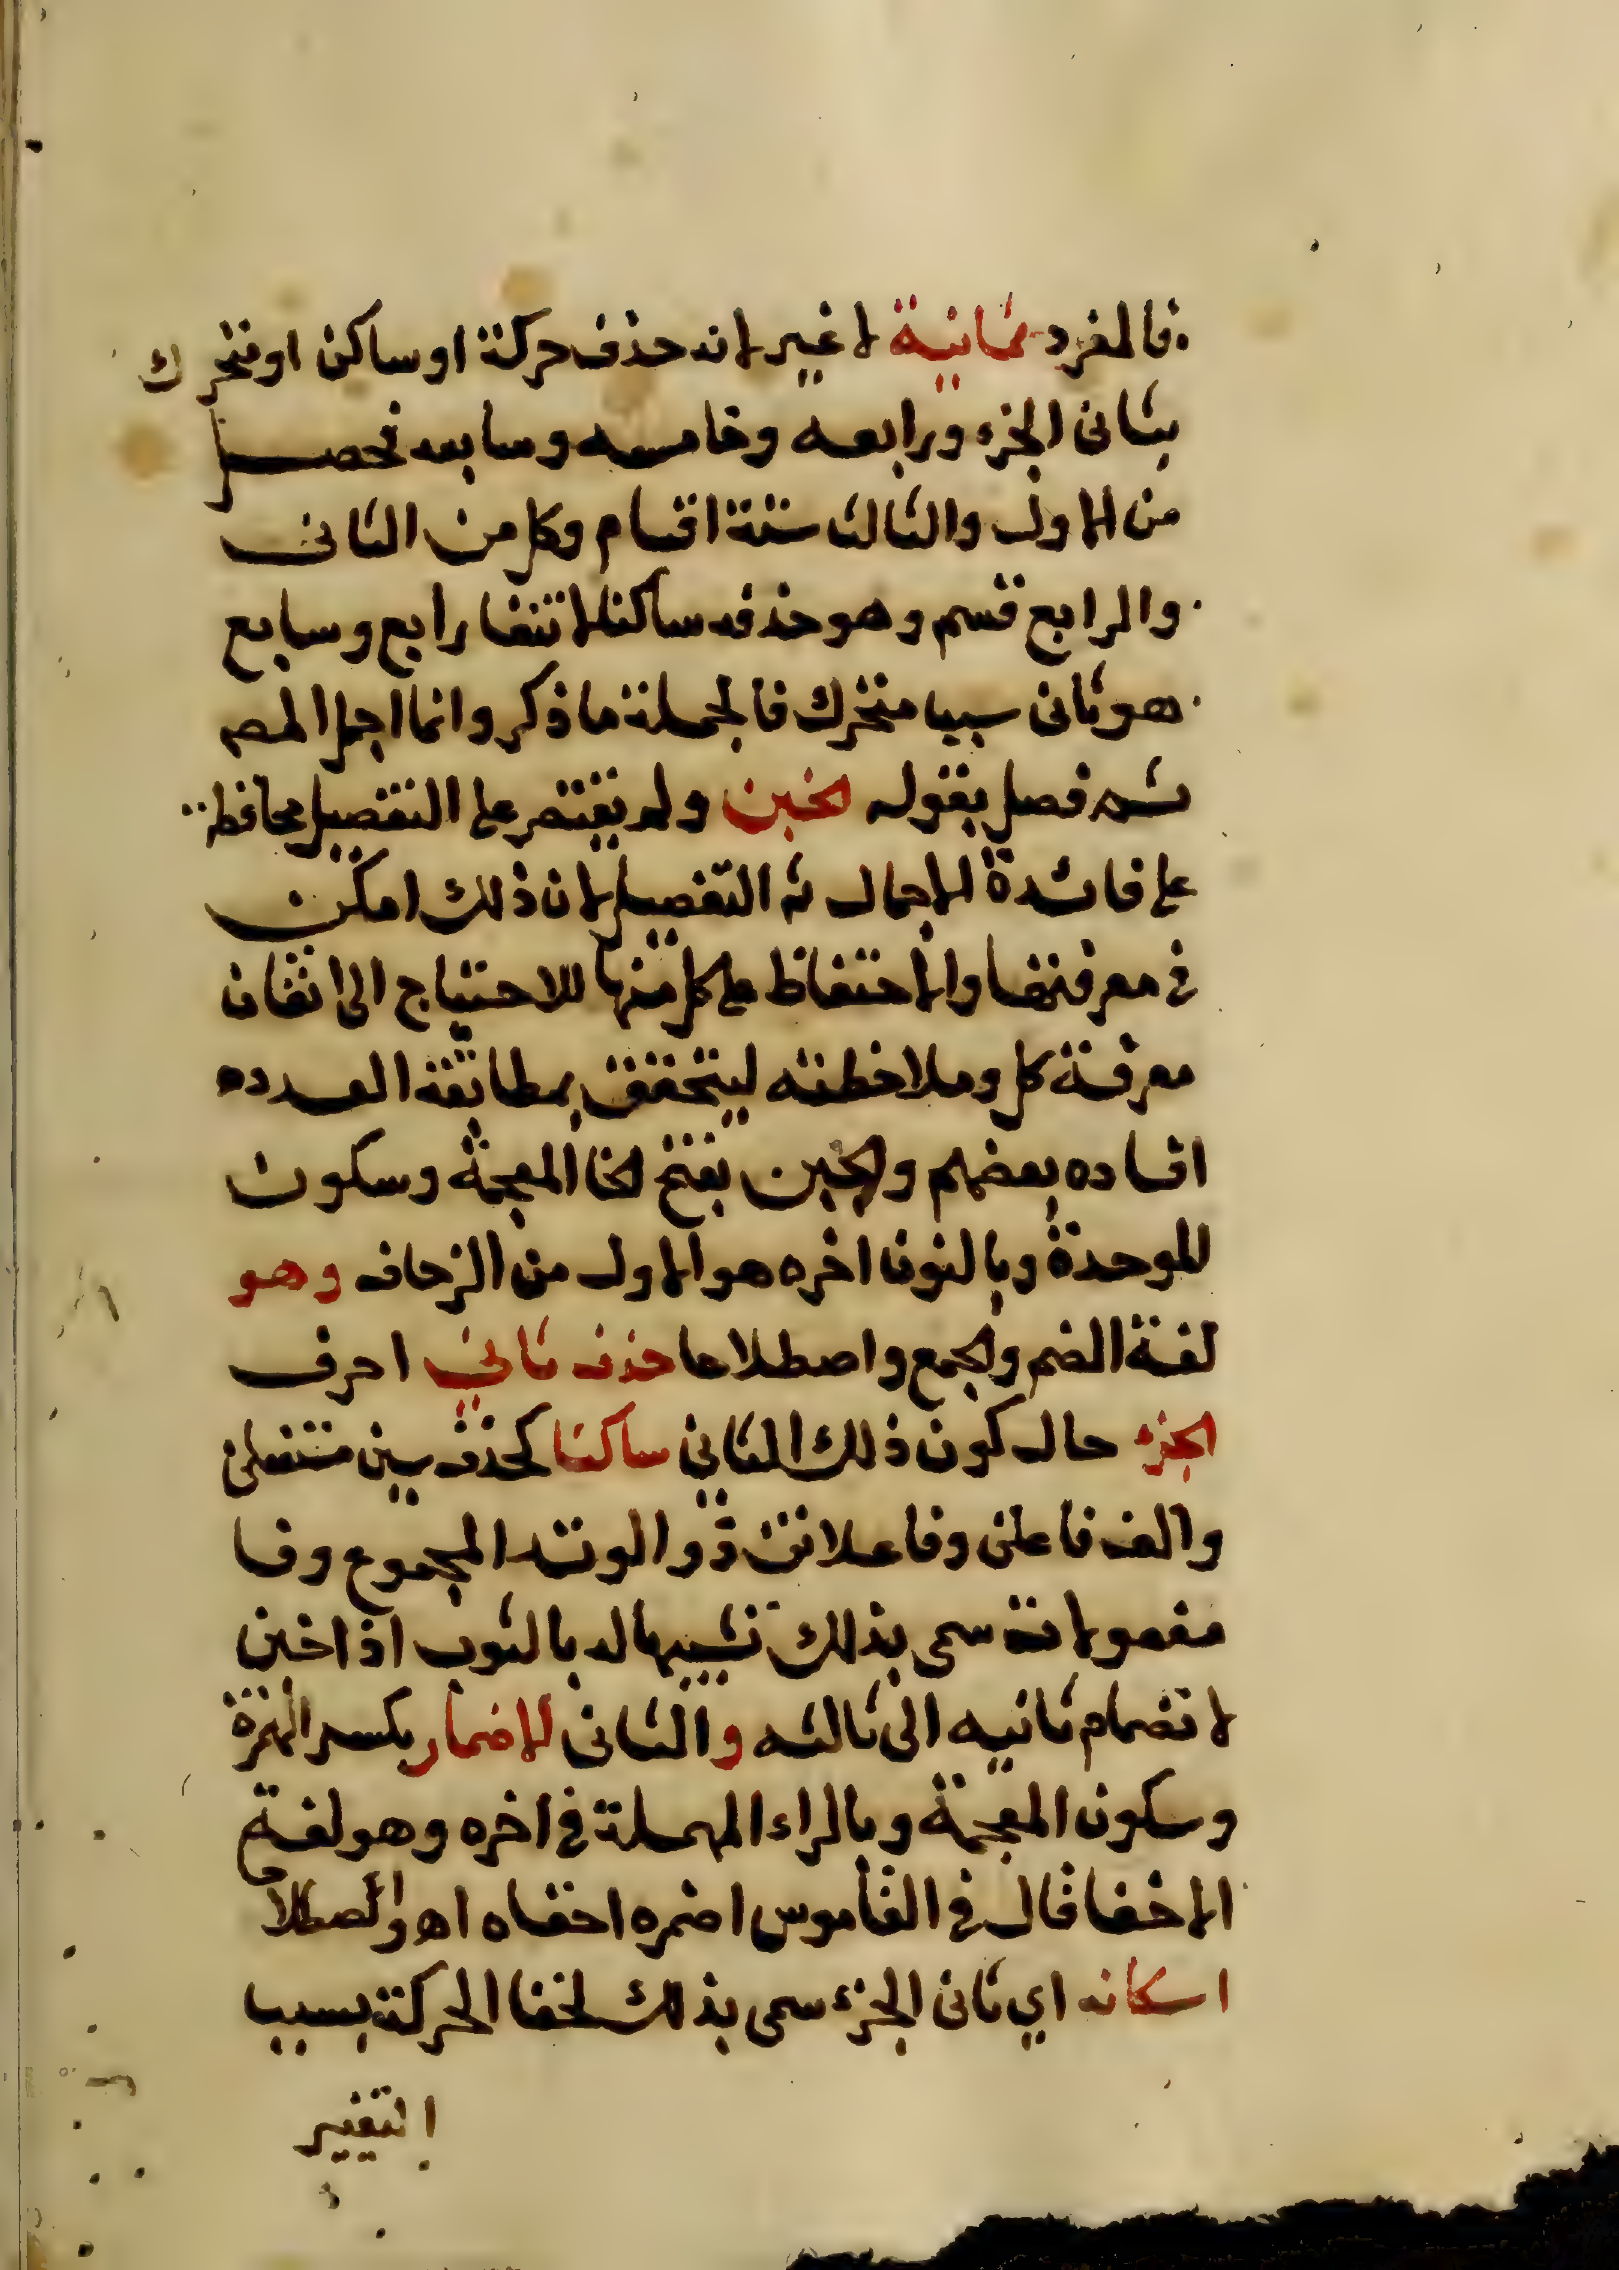 فالمفرد ثمانية لا غير لانه حذف حركة او ساكن او متحرك
بثانى الجزء ورابعه وخامسه وسابعه فحصل
من الاول والثالث ستة اقسام وكل من الثانى
والرابع قسم وهو حذفه ساكنا لانتفا رابع وسابع
هو ثانى سبب متحرك فالجملة ما ذكر وانما اجمل المصـ
ثم فصل بقوله الخبن ولم يقتصر على التفصيل محافظة
على فائدة الاجمال ثم التفصيل لان ذلك امكن
فى معرفتها والاحتفاظ على كل منها للاحتياج الى اتقان
معرفة كل وملاحظته ليتحقق بمطابقة العدد ه
افاده بعضهم والخبن بفتح الخا المعجمة وسكون
الموحدة وبالنون اخره هو الاول من الزحاف وهو
لغة الضم والجمع واصطلاحا حذف ثاني احرف
الجزء حال كون ذلك الثاني ساكنا كحذف سين مستفعلن
والف فاعلن وفاعلاتن ذو الوتد المجموع وفا
مفعولات سمى بذلك تشبيها له بالثوب اذا خبن
لانضمام ثانيه الى ثالثه والثانى الاضمار بكسر الهمزة
وسكون المعجمة وبالراء المهملة فى اخره وهو لغة
الاخفا قال فى القاموس اضمره اخفاه اهـ واصطلاحا
اسكانه اي ثانى الجزء سمى بذلك لخفا الحركة بسبب
التغيير